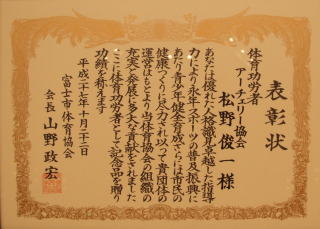 表彰状
体育功労者
アーチェリー協会
松野俊一様
あなたは優れた人格識見卓越した指導
力により永年スポーツの普及振興に
あたり青少年健全育成さらには市民の
健康つくりに尽力され以って貴団体の
運営はもとより当体育協会の組織の
充実と発展に多大な貢献をされました
ここに体育功労者として記念品を贈り
功績を称えます
平成二十七年十月二十三日
富士市体育協会
会長 山野政宏